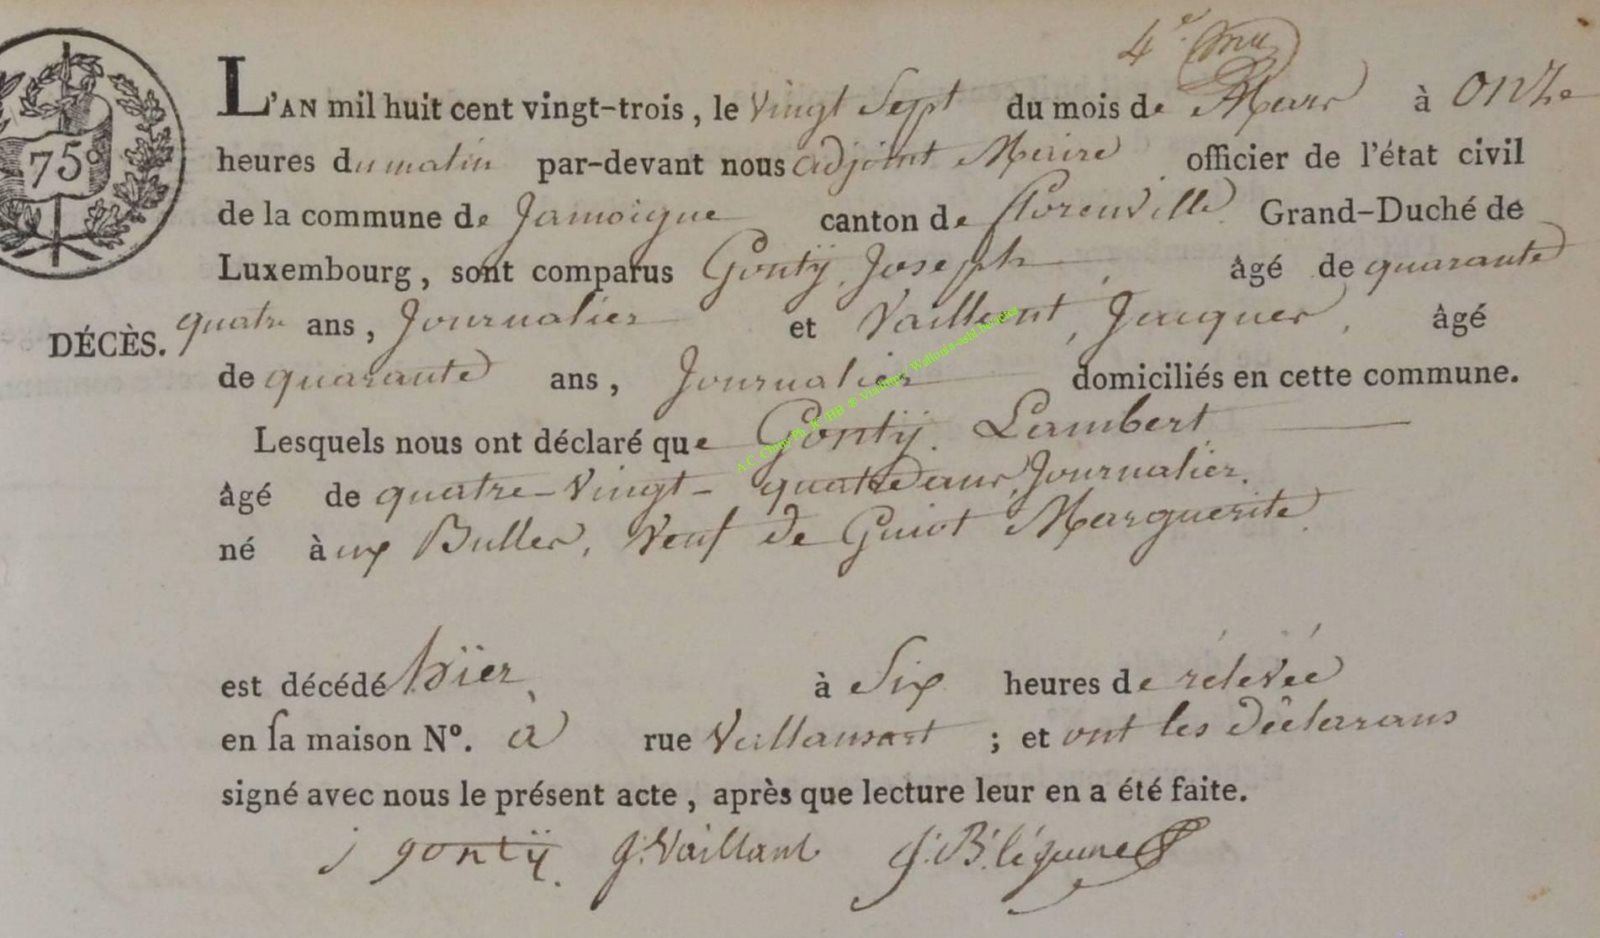 4e
75c
L'AN mil huit cent vingt-trois, le vingt Sept du mois de Mars à Onze
heures du matin par-devant nous adjoint Maire officier de l'état civil
de la commune de Jamoigne canton de florenville Grand-Duché de
Luxembourg, sont comparus Gontÿ, Joseph, âgé de quarante
DÉCÈS. quatre ans, Journalier et Vaillant, Jacques, âgé
de quarante ans, Journalier domiciliés en cette commune.
Lesquels nous ont déclaré que Gontÿ, Lambert
âgé de quatre-vingt-quatre ans, Journalier.
né à ux Bulles, Veuf de Guiot Marguerite.
est décédé hïer, à Six heures de rélévée
en sa maison N°. à rue Vallansart ; et ont les déclarans
signé avec nous le présent acte, après que lecture leur en a été faite.
j gontÿ. J. Vaillant